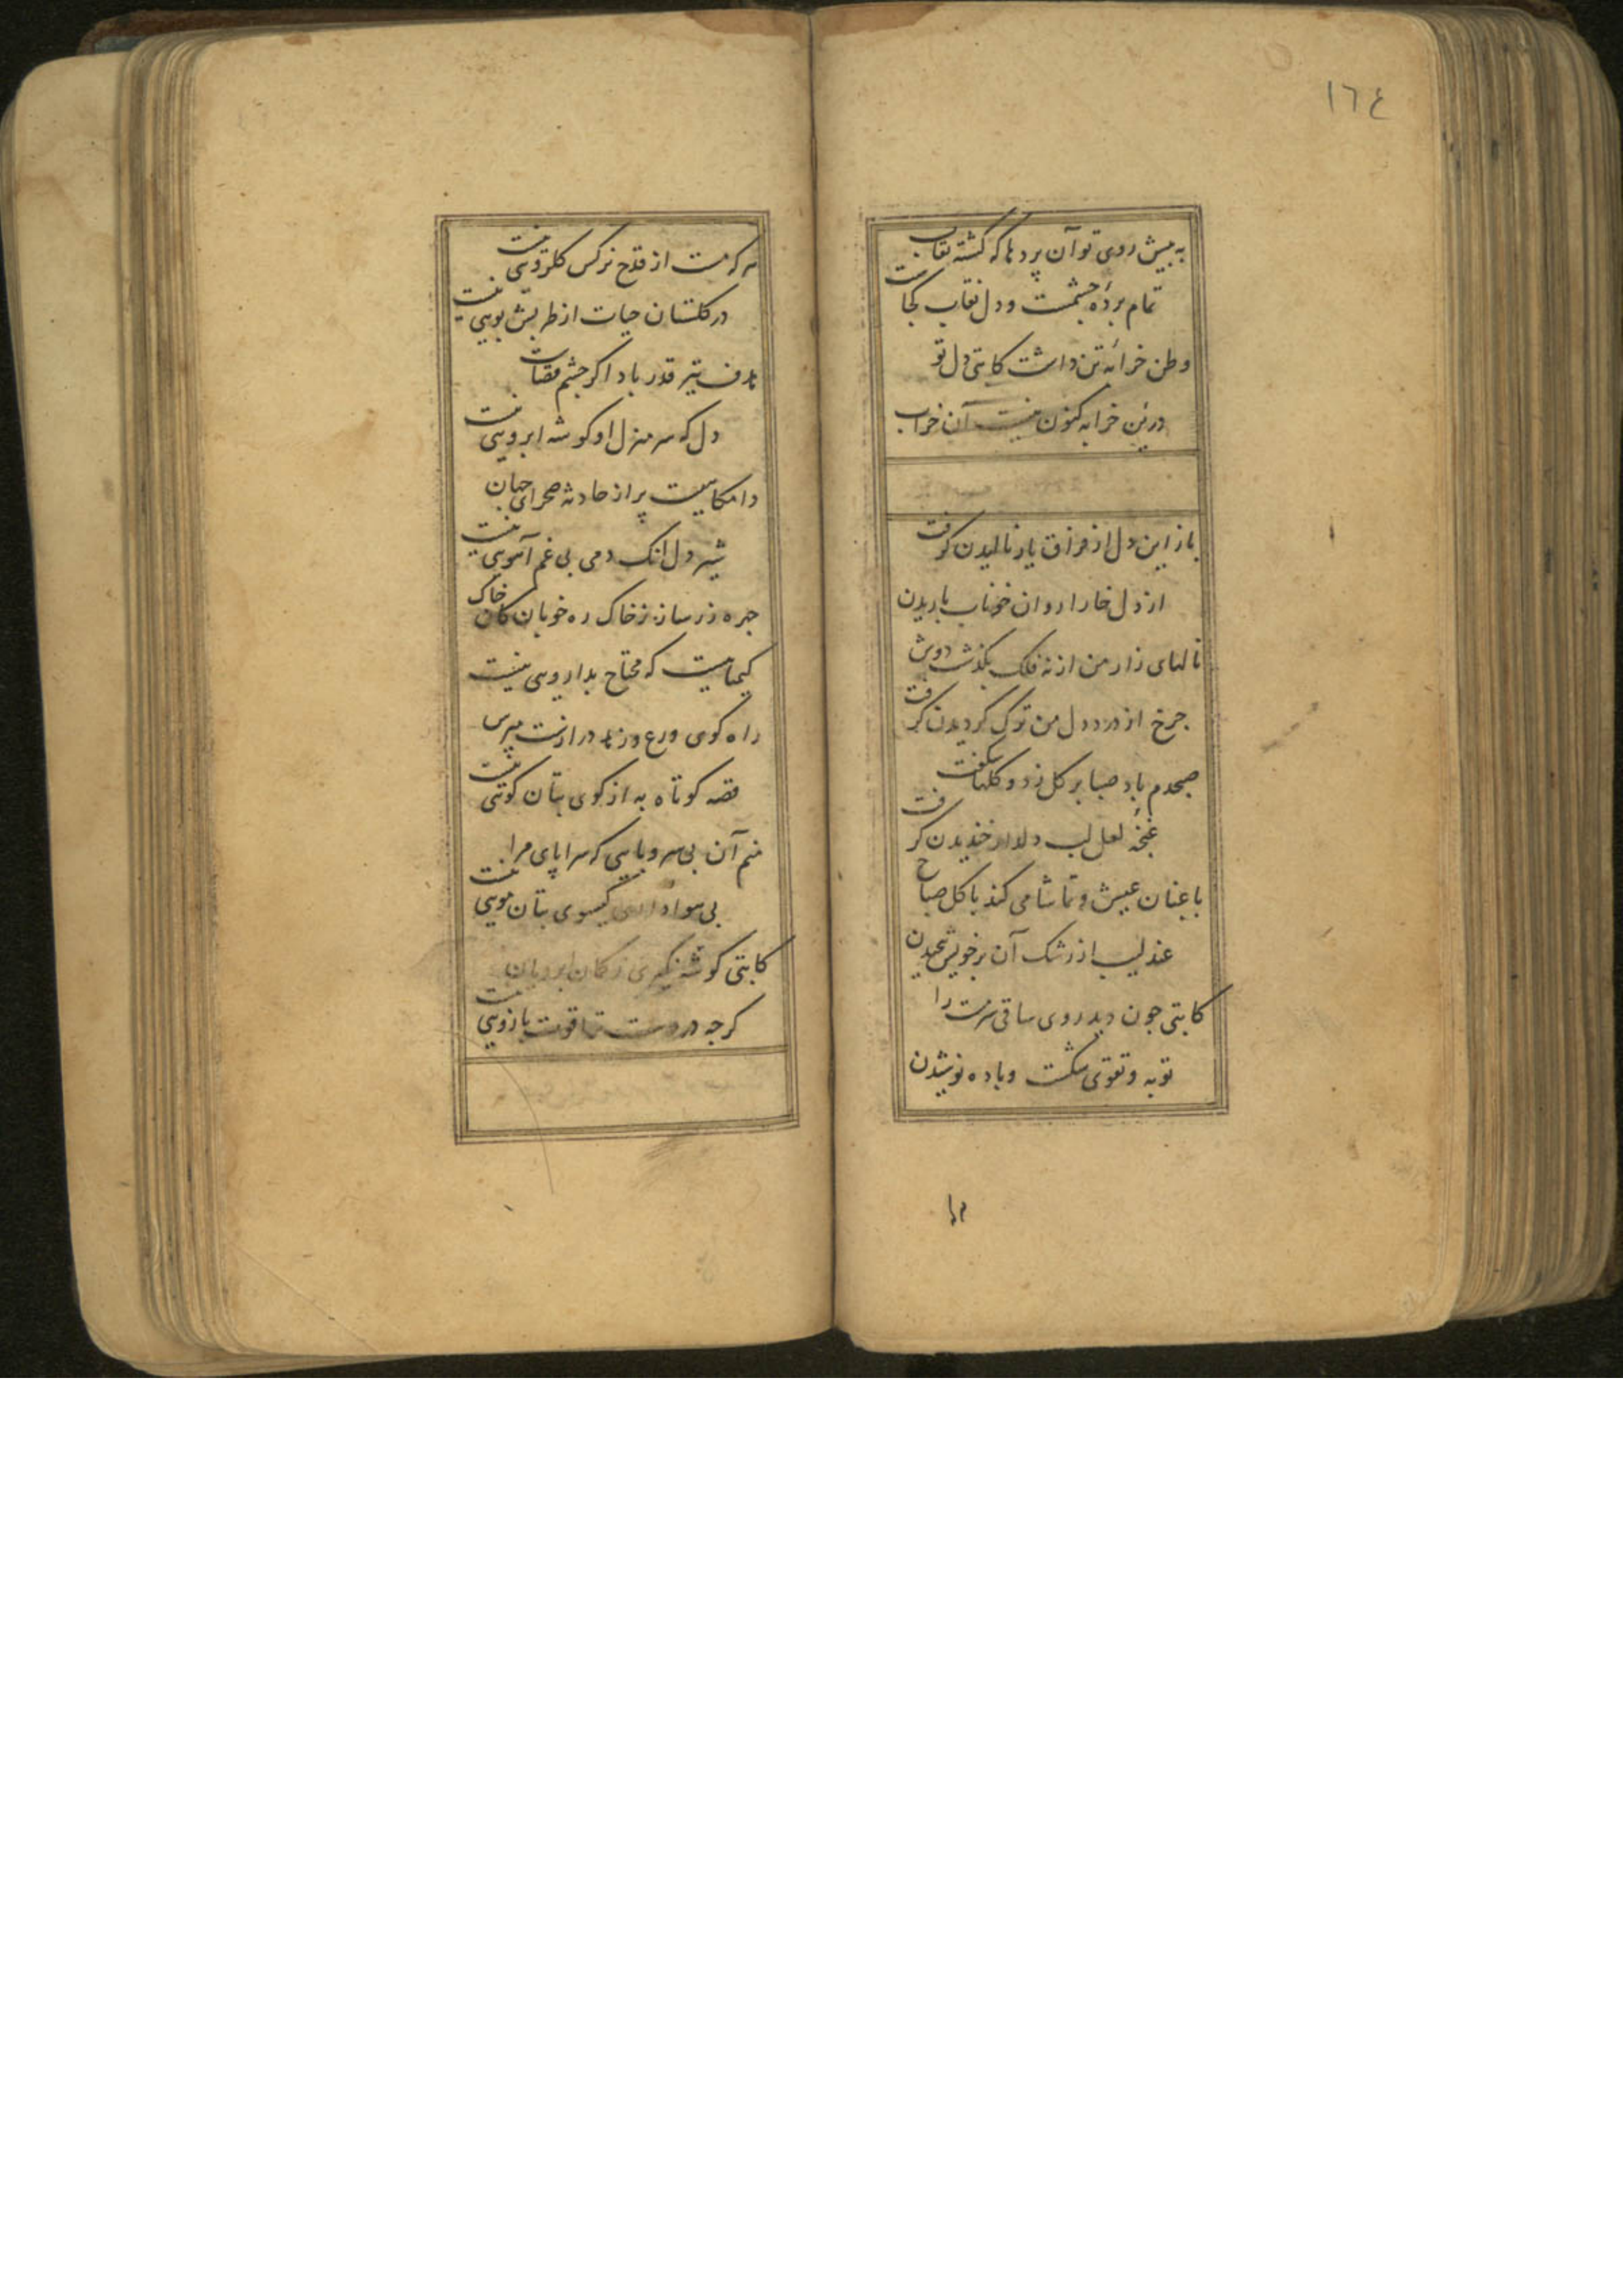 ١٦٤
به پیش روی تو آن پردها که کشته نقاب
تمام پردهٔ چشمست و دل نقاب کجاست
وطن خرابهٔ تن داشت کاتبی دل تو
درین خرابه کنون نیست آن خراب
باز این دل از فراق یار نالیدن کرفت
از دل خارا روان خوناب باریدن
نالهای زار من از نه فلک بکذشت دوش
جرخ از درد دل من ترک کردیدن کرفت
صبحدم باد صبا بر کل زد و کلها شکفت
غنچهٔ لعل لب دلدار خندیدن کرفت
باغبان عیش و تماشا می کند با کل صباح
عندلیب از رشک آن بر خویش پیچیدن
کاتبی جون دید روی ساقی سرمست را
توبه و تقوی شکست و باده نوشیدن
هر که مست از قدح نرکس کلرویی نیست
در کلستان حیات از طربش بویی نیست
هدف تیر قدر باد اکر جشم قضاست
دل که سر منزل او کوشه ابرویی نیست
دامکاهیست پر از حادثه صحرای جهان
شیر دل انک دمی بی غم آهویی نیست
جهره زر ساز ز خاک ره خوبان کان خاک
کیمیاییست که محتاج بدارویی نیست
راه کوی ورع و زهد درازست مپرس
قصه کوتاه به از کوی بتان کویی نیست
منم آن بی سر و پایی که سراپای مرا
بی هواداری کیسوی بتان مویی نیست
کاتبی کوشه نکیری ز کمان ابرویان
کرجه در دست ترا قوت بازویی نیست